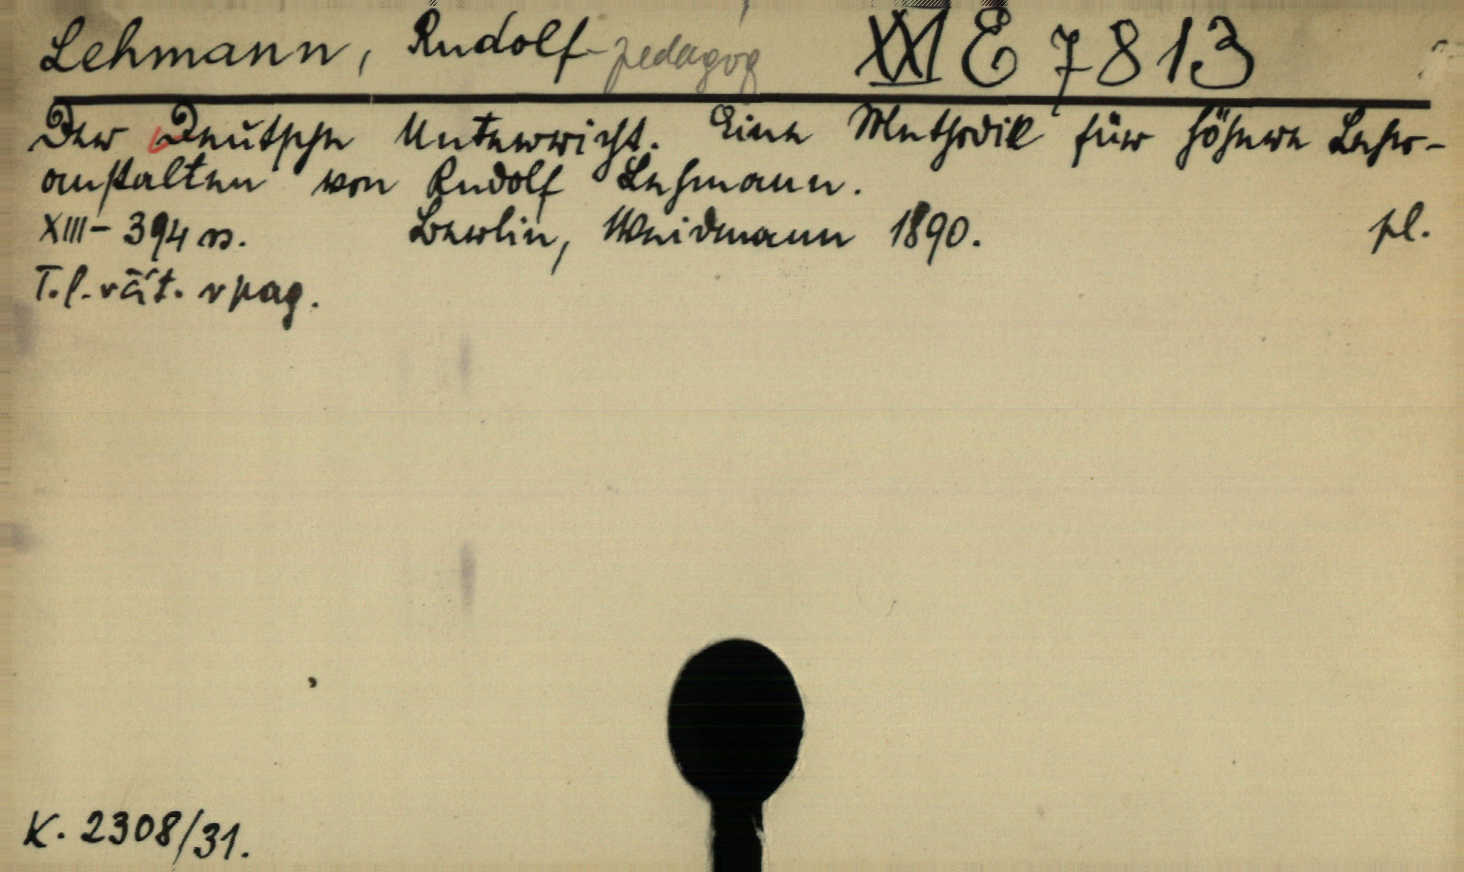 Lehmann, Rudolf - pedagog XXI E 7813
Der Deutsche Unterricht. Eine Methodik für höhere Lehr-
anstalten von Rudolf Lehmann.
XIII - 394 s. Berlin, Weidmann 1890. pl.
T.l. včít. v pag.
K. 2308/31.